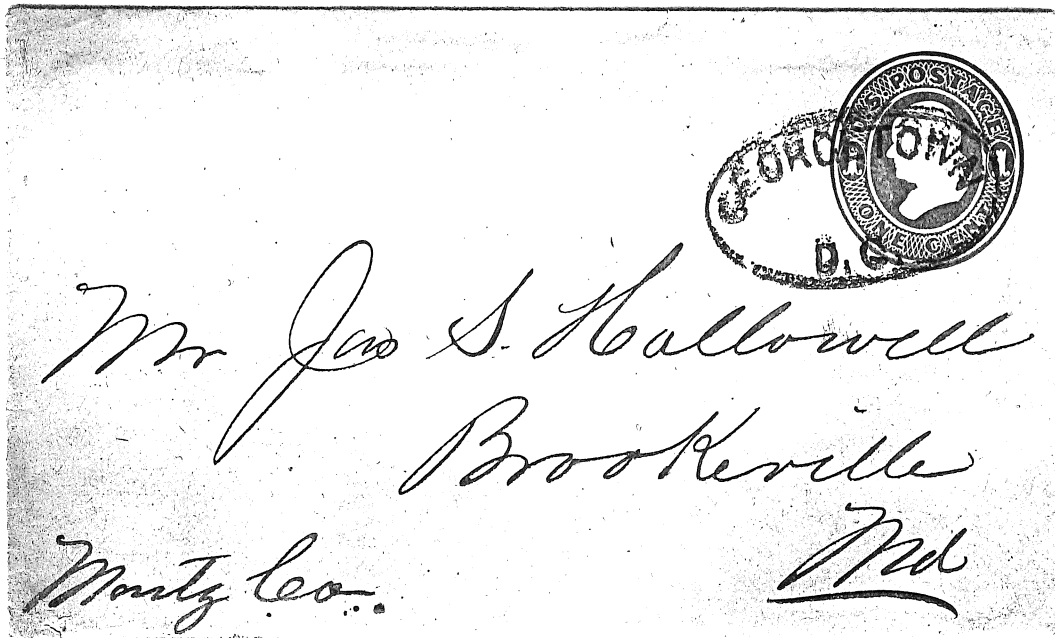 U.S. POSTAGE
1 1
ONE CENT
GEORGETOWN
D.C.
Mr Jas S. Hallowell
Brookeville
Md
Montg Co.